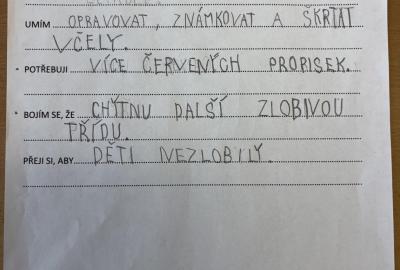 UMÍM OPRAVOVAT, ZNÁMKOVAT A ŠKRTAT
VČELY.
• POTŘEBUJI VÍCE ČERVENÝCH PROPISEK.
• BOJÍM SE, ŽE CHYTNU DALŠÍ ZLOBIVOU
TŘÍDU.
PŘEJI SI, ABY DĚTI NEZLOBILY.